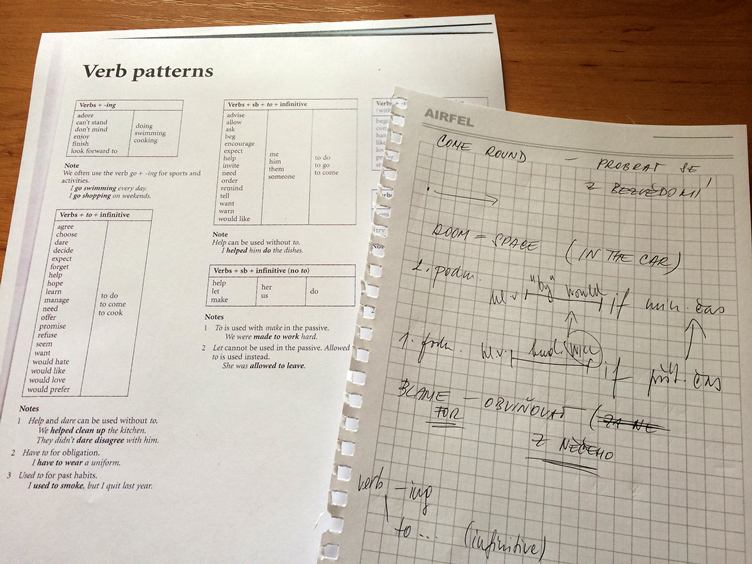 Verb patterns
Verbs + -ing
adore
can't stand
don't mind
enjoy
finish
look forward to
doing
swimming
cooking
Note
We often use the verb go + -ing for sports and
activities.
I go swimming every day.
I go shopping on weekends.
Verbs + to + infinitive
agree
choose
dare
decide
expect
forget
help
hope
learn
manage
need
offer
promise
refuse
seem
want
would hate
would like
would love
would prefer
to do
to come
to cook
Notes
1 Help and dare can be used without to.
We helped clean up the kitchen.
They didn't dare disagree with him.
2 Have to for obligation.
I have to wear a uniform.
3 Used to for past habits.
I used to smoke, but I quit last year.
Verbs + sb + to + infinitive
advise
allow
ask
beg
encourage
expect
help
invite
need
order
remind
tell
want
warn
would like
me
him
them
someone
to do
to go
to come
Note
Help can be used without to.
I helped him do the dishes.
Verbs + sb + infinitive (no to)
help
let
make
her
us
do
Notes
1 To is used with make in the passive.
We were made to work hard.
2 Let cannot be used in the passive. Allowed
to is used instead.
She was allowed to leave.
AIRFEL
COME ROUND – PROBRAT SE
Z BEZVĚDOMÍ
ROOM = SPACE (IN THE CAR)
2. podm.
hl. v. "by" would if min. čas
1. podm. hl. v. bud. will if přít. čas
BLAME FOR – OBVIŇOVAT (ZA NE
Z NĚČEHO
verb -ing
to ... (infinitive)